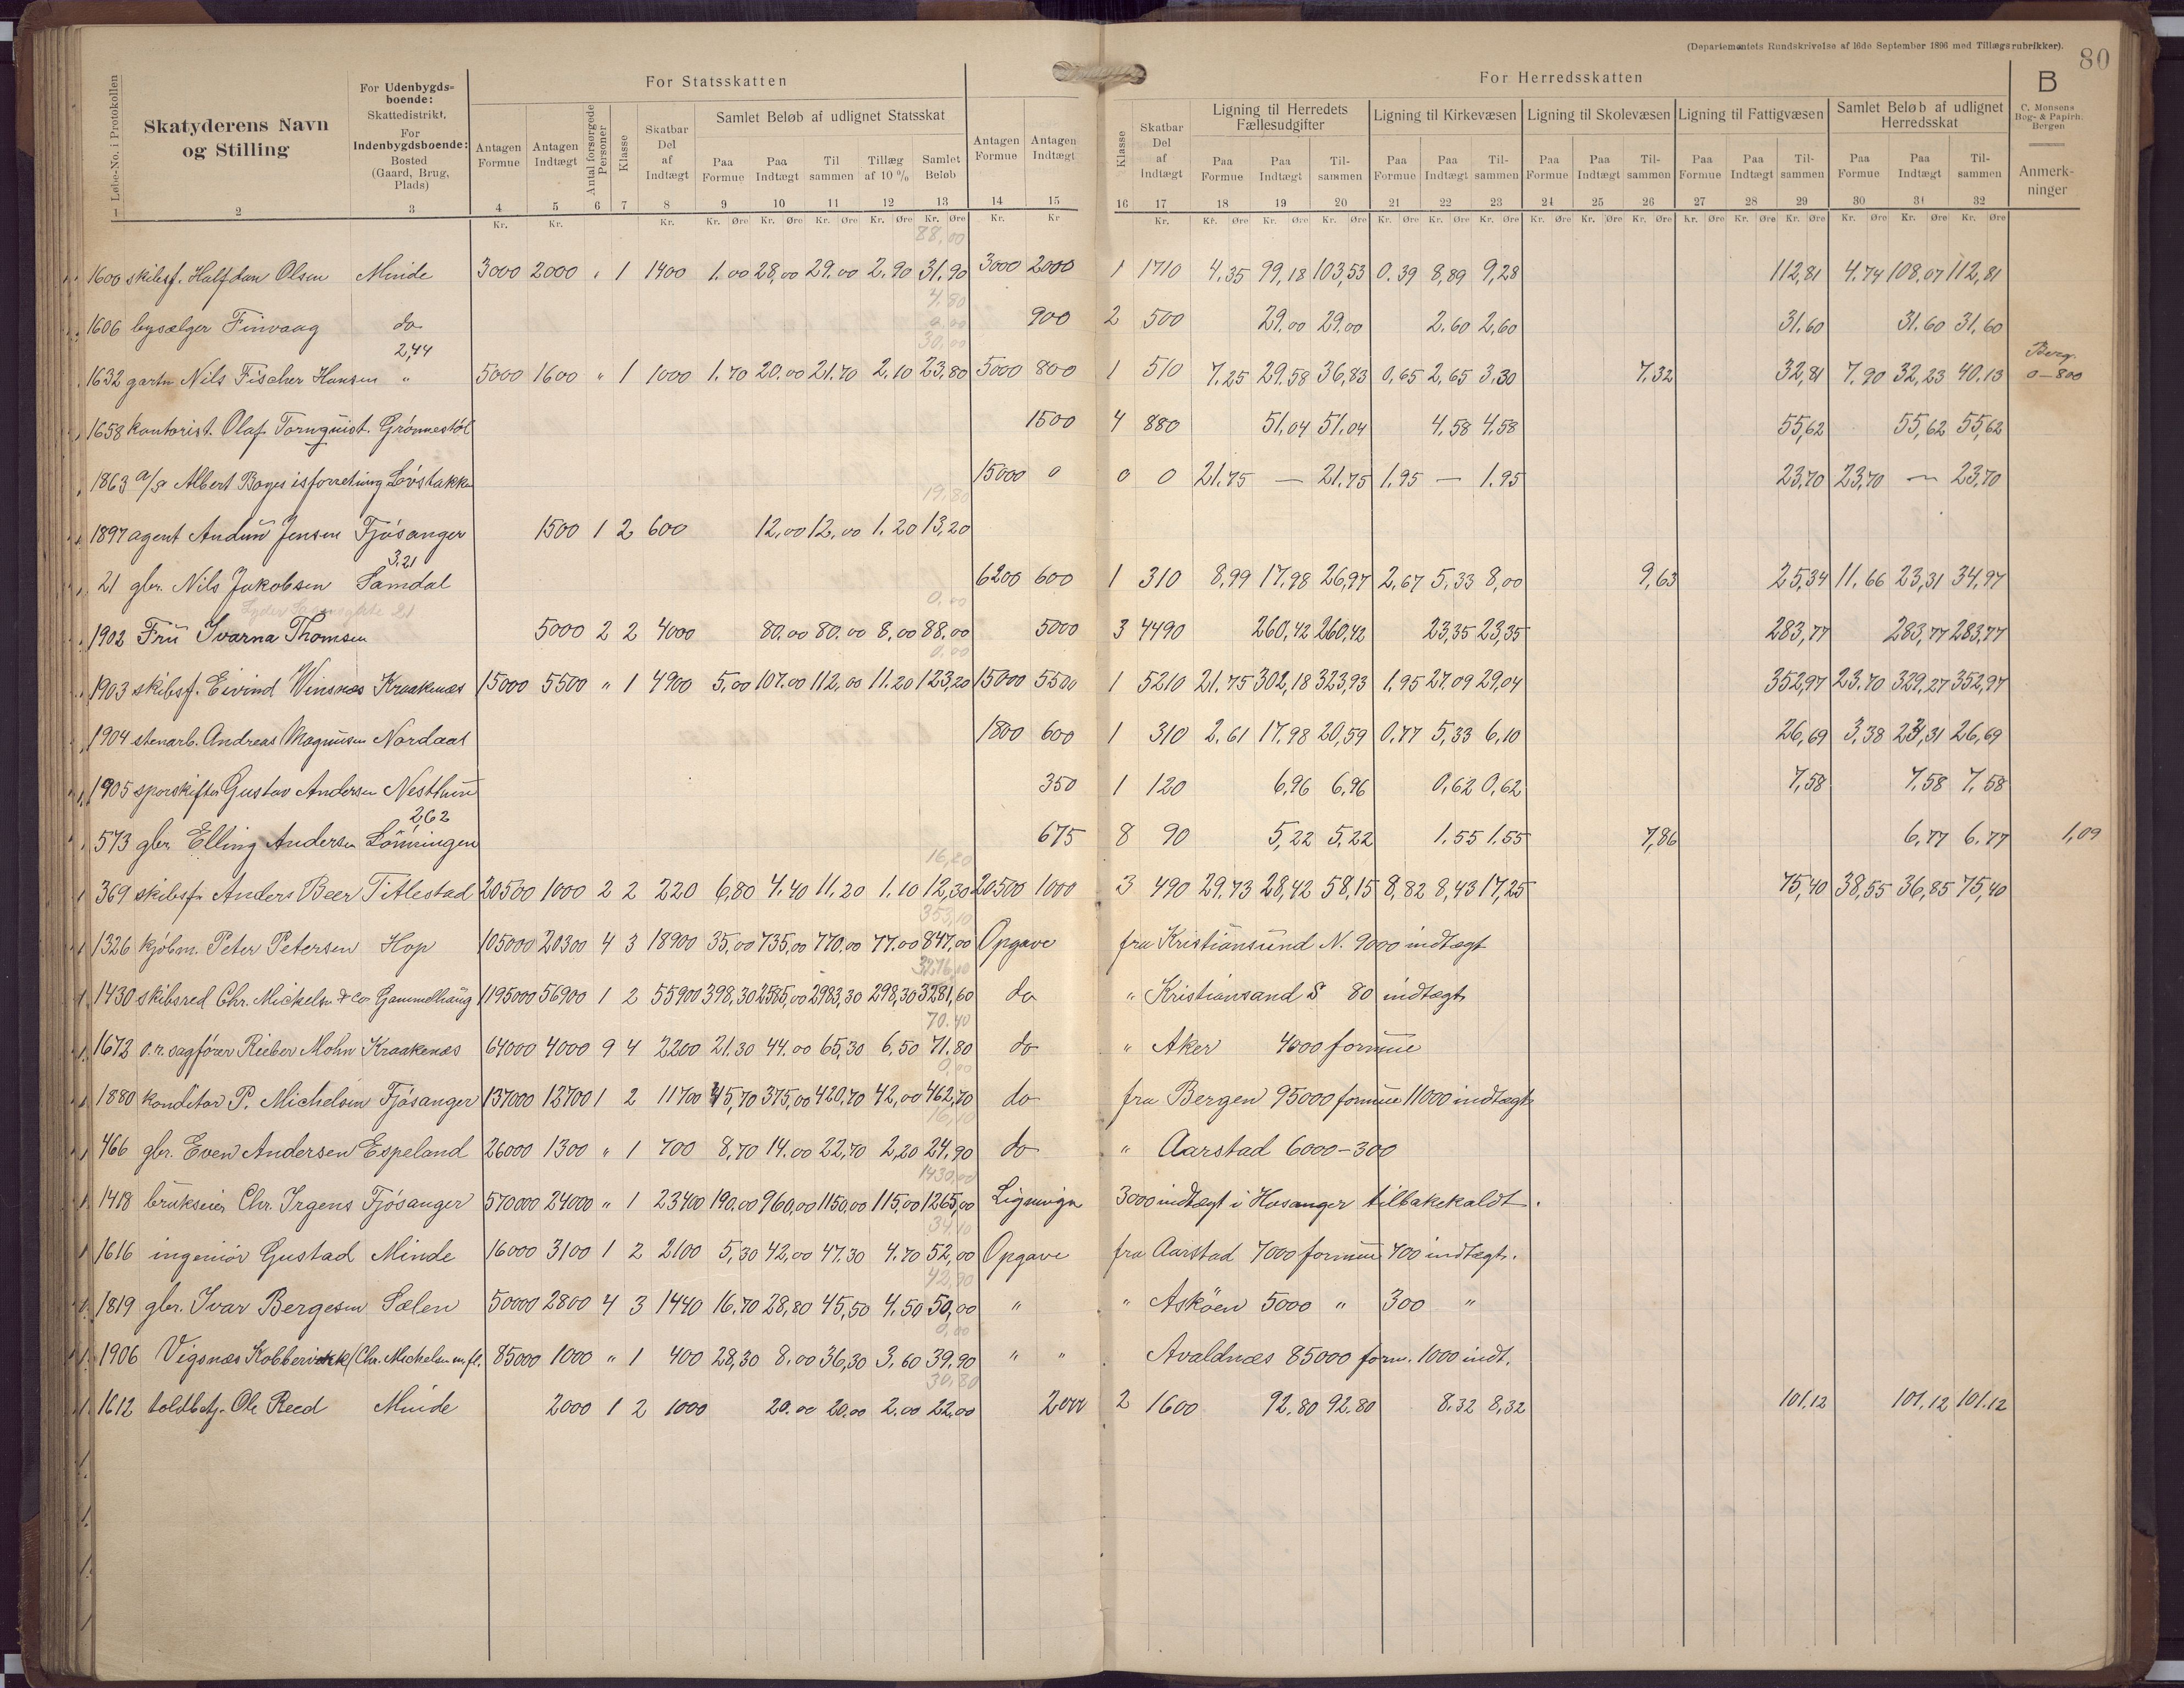 (Departementets Rundskrivelse af 16de September 1896 med Tillægsrubrikker). 80
For Statsskatten For Herredsskatten B
C. Monsens Bog- & Papirh. Bergen
Løbe-No. i Protokollen
Skatyderens Navn og Stilling
For Udenbygdsboende: Skattedistrikt. For Indenbygdsboende: Bosted (Gaard, Brug, Plads)
Antagen Formue Antagen Indtægt Antal forsørgede Personer Klasse Skatbar Del af Indtægt
Samlet Beløb af udlignet Statsskat
Paa Formue Paa Indtægt Til sammen Tillæg af 10 % Samlet Beløb
Antagen Formue Antagen Indtægt
Klasse Skatbar Del af Indtægt
Ligning til Herredets Fællesudgifter Ligning til Kirkevæsen Ligning til Skolevæsen Ligning til Fattigvæsen Samlet Beløb af udlignet Herredsskat
Paa Formue Paa Indtægt Tilsammen Paa Formue Paa Indtægt Tilsammen Paa Formue Paa Indtægt Tilsammen Paa Formue Paa Indtægt Tilsammen Paa Formue Paa Indtægt Tilsammen
Anmerkninger
1 2 3 4 5 6 7 8 9 10 11 12 13 14 15 16 17 18 19 20 21 22 23 24 25 26 27 28 29 30 31 32
Kr. Kr. Kr. Kr. Øre Kr. Øre Kr. Øre Kr. Øre Kr. Øre Kr. Kr Kr. Kr. Øre Kr. Øre Kr. Øre Kr. Øre Kr. Øre Kr. Øre Kr. Øre Kr. Øre Kr. Øre Kr. Øre Kr. Øre Kr. Øre Kr. Øre Kr. Øre Kr. Øre
88,00
1600 skibsf. Halfdan Olsen Minde 3000 2000 " 1 1400 1.00 28,00 29.00 2.90 31.90 3000 2000 1 1710 4.35 99,18 103,53 0.39 8,89 9,28 112,81 4.74 108,07 112,81
4.80
1606 bysælger Finvaag do 900 2 500 29.00 29.00 2.60 2,60 31.60 31.60 31,60
2,44 30,00
1632 gartn Nils Fischer Hansen " 5000 1600 " 1 1000 1.70 20.00 21.70 2,10 23,80 5000 800 1 510 7.25 29.58 36,83 0,65 2,65 3,30 7,32 32,81 7.90 32,23 40.13 Berg. 0-800
1658 kontorist. Olaf Tornquist Grønnestøl 1500 4 880 51.04 51.04 4.58 4.58 55,62 55,62 55,62
1863 a/s Albert Bøyes isforretning Løvstakken 15000 0 0 0 21.75 — 21.75 1.95 — 1.95 23,70 23,70 — 23,70
19,80
1897 agent Audun Jensen Fjøsanger 1500 1 2 600 12,00 12,00 1.20 13,20
3,21
21 gbr. Nils Jakobsen Samdal 6200 600 1 310 8,99 17.98 26,97 2,67 5,33 8,00 9,63 25,34 11.66 23,31 34,97
0,00
1902 Fru Ivarna Thomsen 5000 2 2 4000 80.00 80.00 8,00 88.00 5000 3 4490 260,42 260,42 23,35 23,35 283,77 283,77 283,77
0,00
1903 skibsf. Eivind Vinsnæs Kraakenæs 15000 5500 " 1 4900 5,00 107.00 112,00 11.20 123,20 15000 5500 1 5210 21.75 302,18 323,93 1.95 27.09 29,04 352,97 23.70 329,27 352,97
1904 stenarb. Andreas Magnusen Nordaas 1800 600 1 310 2,61 17.98 20,59 0,77 5,33 6,10 26,69 3,38 23,31 26,69
1905 sporskifter Gustav Andersen Nesttun 350 1 120 6,96 6,96 0,62 0,62 7,58 7,58 7,58
2,62
573 gbr. Elling Andersen Lønningen 675 8 90 5,22 5,22 1.55 1.55 7,86 6,77 6.77 1,09
16,20
369 skibsfr Anders Beer Titlestad 20500 1000 2 2 220 6,80 4.40 11.20 1.10 12,30 20500 1000 3 490 29.73 28,42 58,15 8,82 8,43 17,25 75,40 38,55 36,85 75,40
353,10
1326 kjøbm. Peter Petersen Hop 105000 20300 4 3 18900 35,00 735,00 770.00 77.00 847,00 Opgave fra Kristiansund N. 9000 indtægt
3276,10
1430 skibsred Chr. Michelsen & Co Gammelhaug 1195000 56900 1 2 55900 398,30 2585,00 2983,30 298,30 3281,60 do " Kristiansand S 80 indtægt
70.40
1672 o.r. sagfører Rieber Mohn Kraakenæs 64000 4000 9 4 2200 21.30 44.00 65,30 6,50 71.80 do " Aker 4000 formue
0,00
1880 konditor P. Michelsen Fjøsanger 137000 12700 1 2 11700 45,70 375,00 420,70 42,00 462,70 do fra Bergen 95000 formue 11000 indtægt
16,10
466 gbr. Even Andersen Espeland 26000 1300 " 1 700 8,70 14.00 22,70 2,20 24.90 do " Aarstad 6000-300
1430,00
1418 brukseier Chr. Irgens Fjøsanger 570000 24000 " 1 23400 190.00 960,00 1150,00 115,00 1265,00 Ligningn 3000 indtægt i Hosanger tilbakekaldt.
34,10
1616 ingeniør Gustad Minde 16000 3100 1 2 2100 5,30 42,00 47.30 4.70 52,00 Opgave fra Aarstad 7000 formue 700 indtægt.
42,90
1819 gbr. Ivar Bergesen Sælen 50000 2800 4 3 1440 16.70 28,80 45,50 4.50 50,00 " " Askøen 5000 " 300 "
0,00
1906 Vigsnæs Kobberverk (Chr. Michelsen m.fl. 85000 1000 " 1 400 28,30 8.00 36,30 3,60 39.90 " " Avaldnæs 85000 form. 1000 indt.
30,80
1612 toldbetj. Ole Reed Minde 2000 1 2 1000 20.00 20.00 2.00 22,00 2000 2 1600 92.80 92.80 8.32 8,32 101,12 101,12 101.12